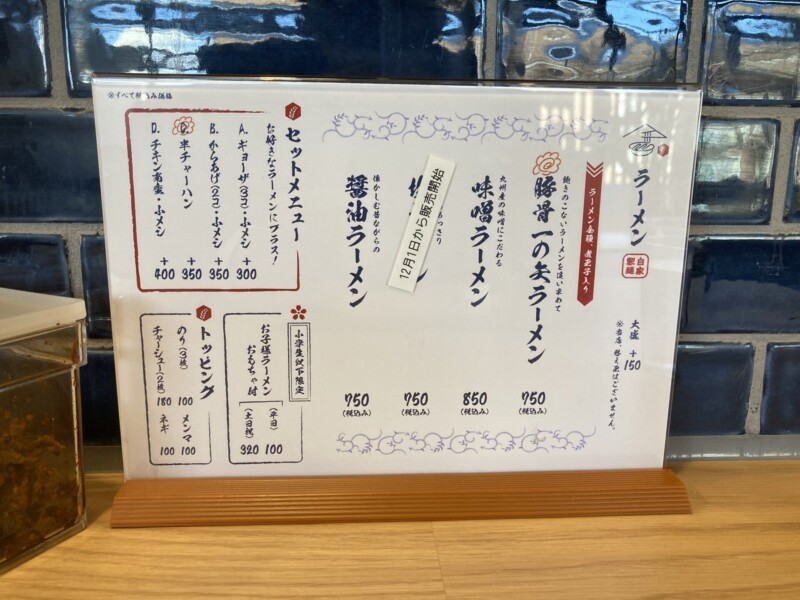 ※すべて税込み価格
ラーメン
自家製麺
大盛 +150
※当店、替え玉はございません。
ラーメン全種、煮玉子入り
飽きのこないラーメンを追い求めて
豚骨一の矢ラーメン
750
(税込み)
九州産の味噌にこだわる
味噌ラーメン
850
(税込み)
12月1日から販売開始
750
(税込み)
懐かしむ昔ながらの
醤油ラーメン
750
(税込み)
セットメニュー
お好きなラーメンにプラス!
A. ギョーザ(3コ)・小メシ +300
B. からあげ(2コ)・小メシ +350
C. 半チャーハン +350
D. チキン南蛮・小メシ +400
小学生以下限定
お子様ラーメン
おもちゃ付
(平日) 100
(土日祝) 320
トッピング
のり(3枚) 100
チャーシュー(2枚) 180
メンマ 100
ネギ 100